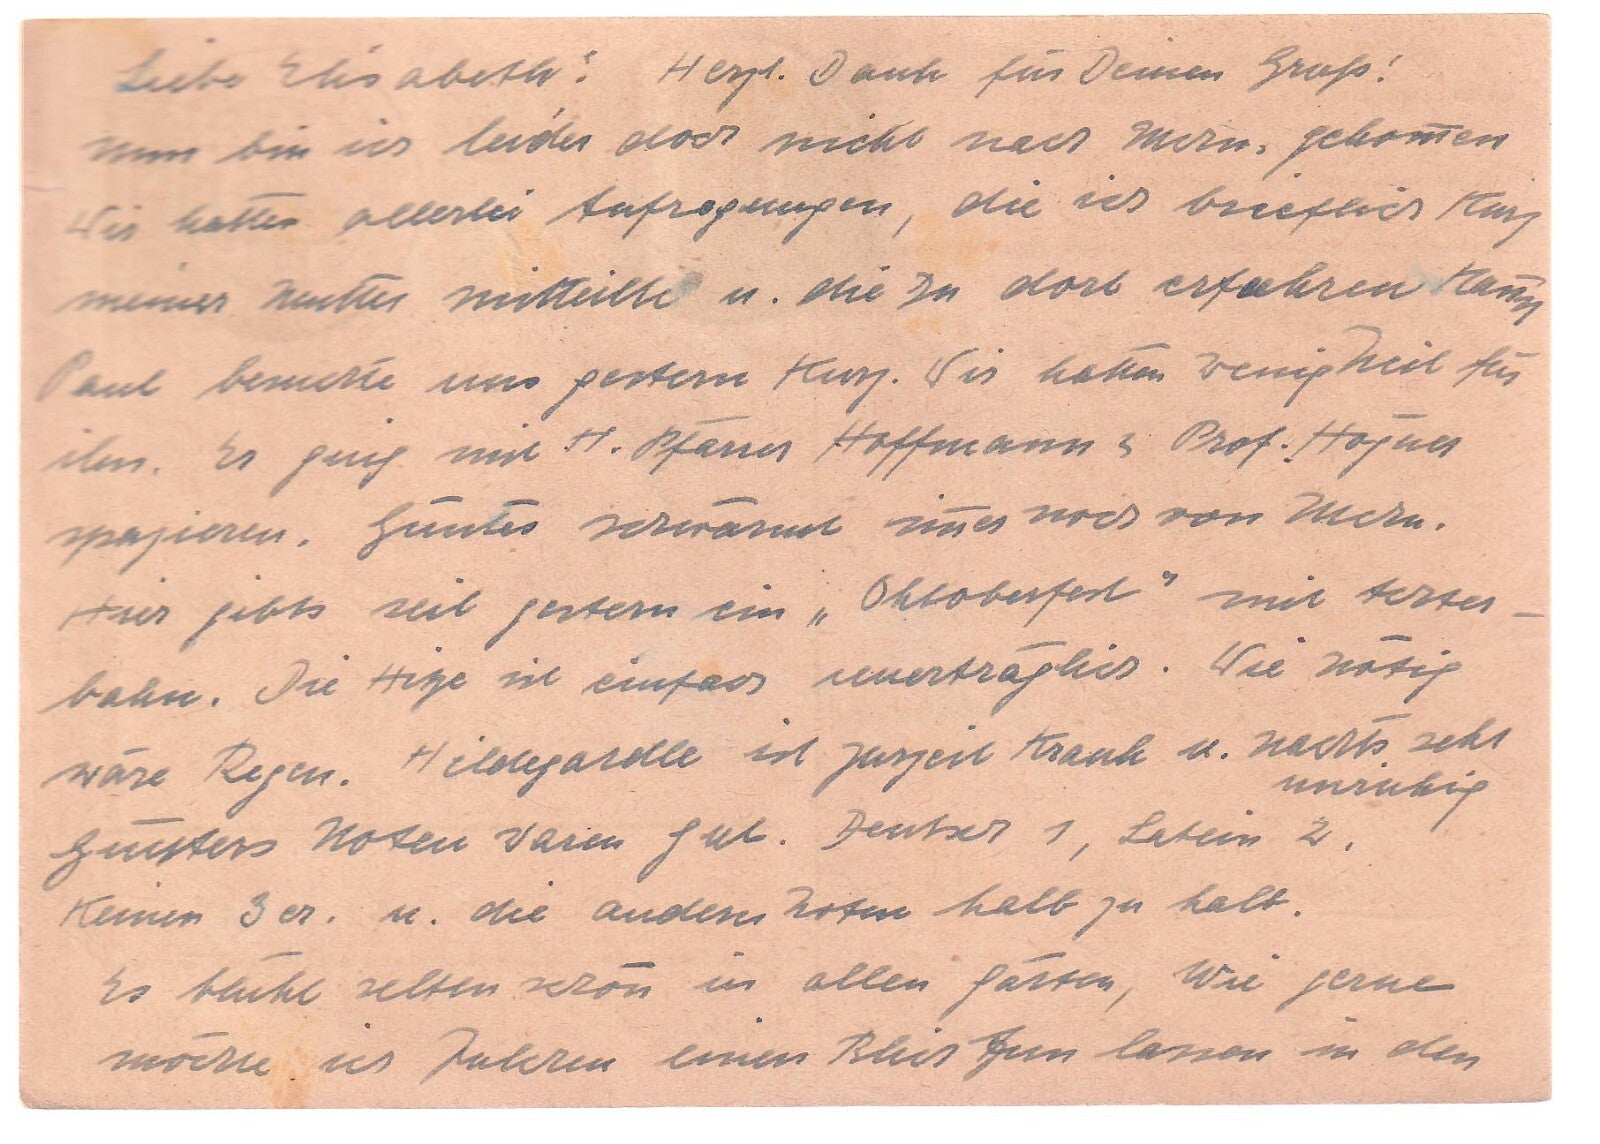 Liebe Elisabeth! Herzl. Dank für Deinen Gruß!
nun bin ich leider doch nicht nach gekom̅en
Wir hatten allerlei Aufregungen, die ich brieflich kurz
meiner Mutter mitteilte u. die Du dort erfahren kannst
Paul besuchte uns gestern kurz. Wir hatten wenig Zeit für
ihn. Er ging mit H. Pfarrer Hoffmann & Prof.
spazieren. Günter schwärmt im̅er noch von
Hier gibts seit gestern ein „Oktoberfest" mit Achter-
bahn. Die Hitze ist einfach unerträglich. Wie nötig
wäre Regen. Hildegardle ist zurzeit krank u. nachts sehr
unruhig
Günters Noten waren gut. Deutsch 1, Latein 2.
Keinen 3er. u. die andern Noten halb zu halb.
Es blüht selten schön in allen Gärten, Wie gerne
möchte ich einen Blick tun lassen in den